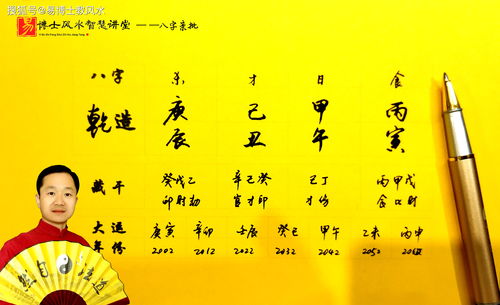 易 博士风水智慧讲堂 ——八字亲批
八字 杀 才 日 食
乾造 庚 己 甲 丙
辰 丑 午 寅
藏干 癸戊乙 辛己癸 己丁 丙甲戊
印财劫 官才印 才伤 食口财
大运 庚寅 辛卯 壬辰 癸巳 甲午 乙未 丙申
年份 2002 2012 2022 2032 2042 2052 2062
道法自然